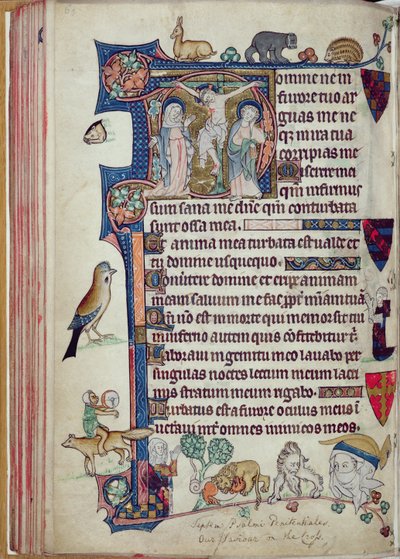 Domine ne in
furore tuo ar
guas me ne
qꝫ in ira tua
corripias me
Miserere me
qm̄ infirmus
sum sana me dn̄e qm̄ conturbata
sunt ossa mea.
Et anima mea turbata est valde et
tu domine usquequo
Convertere domine et eripe animam
meam salvum me fac ꝓpt̄ mīam tuā
Qm̄ nō est in morte qui memor sit tui
in inferno autem quis cōfitebitur t
Laboravi in gemitu meo lavabo per
singulas noctes lectum meum lacri
mis stratum meum rigabo.
Turbatus est a furore oculus meus i
omnes inimicos meos.
Septem Psalmi Penitentiales.
Our Saviour on the Cross.